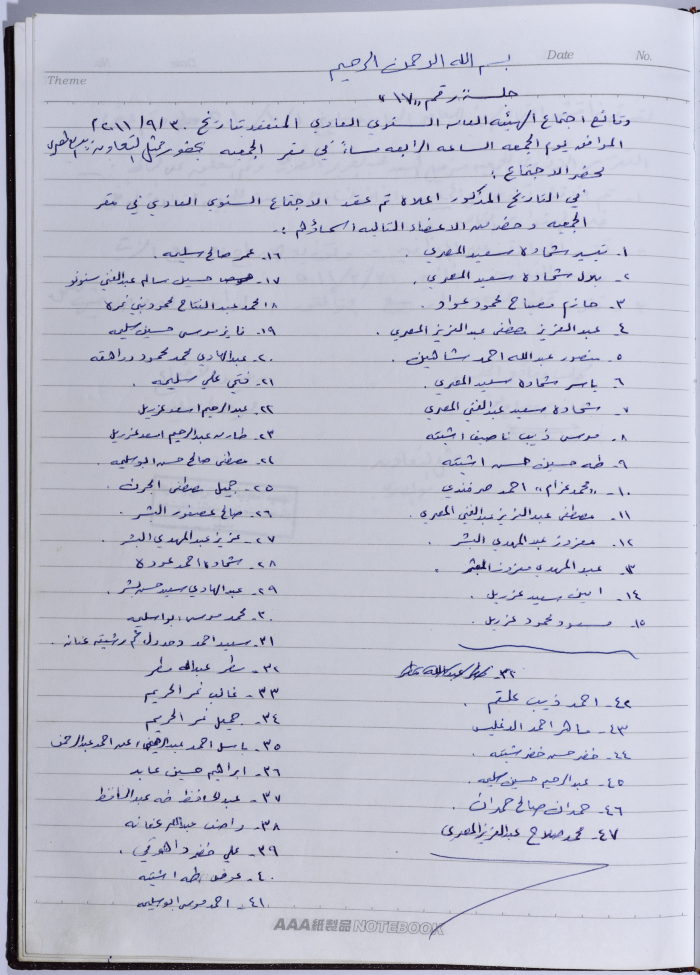 Theme
Date
No.
بسم الله الرحمن الرحيم
جلسة رقم "١٧"
وقائع اجتماع الهيئة العامة السنوي العادي المنعقد بتاريخ ٢٠١١/٩/٣٠
الموافق يوم الجمعة الساعة الرابعة مساءً في مقر الجمعية بحضور ممثل التعاون
محضر الاجتماع:
في التاريخ المذكور اعلاه تم عقد الاجتماع السنوي العادي في مقر
الجمعية وحضر من الاعضاء التالية اسماؤهم :-
١- تيسير شحادة سعيد المصري .
٢- بلال شحادة سعيد المصري .
٣- حازم مصباح محمود عواد .
٤- عبد العزيز مصطفى عبد العزيز المصري .
٥- منصور عبد الله احمد شاهين .
٦- ياسر شحادة سعيد المصري .
٧- شحادة سعيد عبد الغني المصري
٨- موسى ذيب ناصيف اشتيه
٩- طه حسين حسن اشتيه
١٠- "محمد عزام" احمد صرفندي
١١- مصطفى عبد العزيز عبد الغني المصري .
١٢- معزوز عبد المهدي البشر .
١٣- عبد المهدي معزوز البشر .
١٤- امين سعيد عزريل .
١٥- مسعود محمود عزريل .
١٦- عمر صالح سليمه .
١٧- حسين سالم عبد الغني سنونو
١٨- محمد عبد الفتاح محمود بني نمرة
١٩- فايز موسى حسين سليمه
٢٠- عبد الهادي محمد محمود دراهقه
٢١- فتحي علي سليمه .
٢٢- عبد الرحيم اسعد عزريل
٢٣- طارق عبد الرحيم اسعد عزريل
٢٤- مصطفى صالح حسن ابو سليمه .
٢٥- جميل مصطفى الجرن .
٢٦- صالح عصفور البشر .
٢٧- عزيز عبد المهدي البشر .
٢٨- شحادة احمد عودة
٢٩- عبد الهادي سعيد حسن بشر .
٣٠- محمد موسى ابو سليمه
٣١- سعيد احمد
٣٢- مطر عبد الله مطر
٣٣- غالب نمر الحريم
٣٤- جميل نمر الحريم
٣٥- باسل احمد عبد الرحمن عن احمد عبد الرحمن
٣٦- ابراهيم حسين عابد
٣٧- عبد الحافظ طه عبد الحافظ
٣٨- راضي عبد الله عنانه
٣٩- علي خضر داهوقي .
٤٠- عوض طه اشتيه
٤١- احمد موسى ابو سليمه
٤٢- احمد ذيب علقم .
٤٣- ماهر احمد الدغليس
٤٤- خضر حسن خضر شتيه .
٤٥- عبد الرحيم حسين سليمه .
٤٦- حمدان صالح حمدان .
٤٧- محمد صلاح عبد العزيز المصري
AAA紙製品 NOTEBOOK